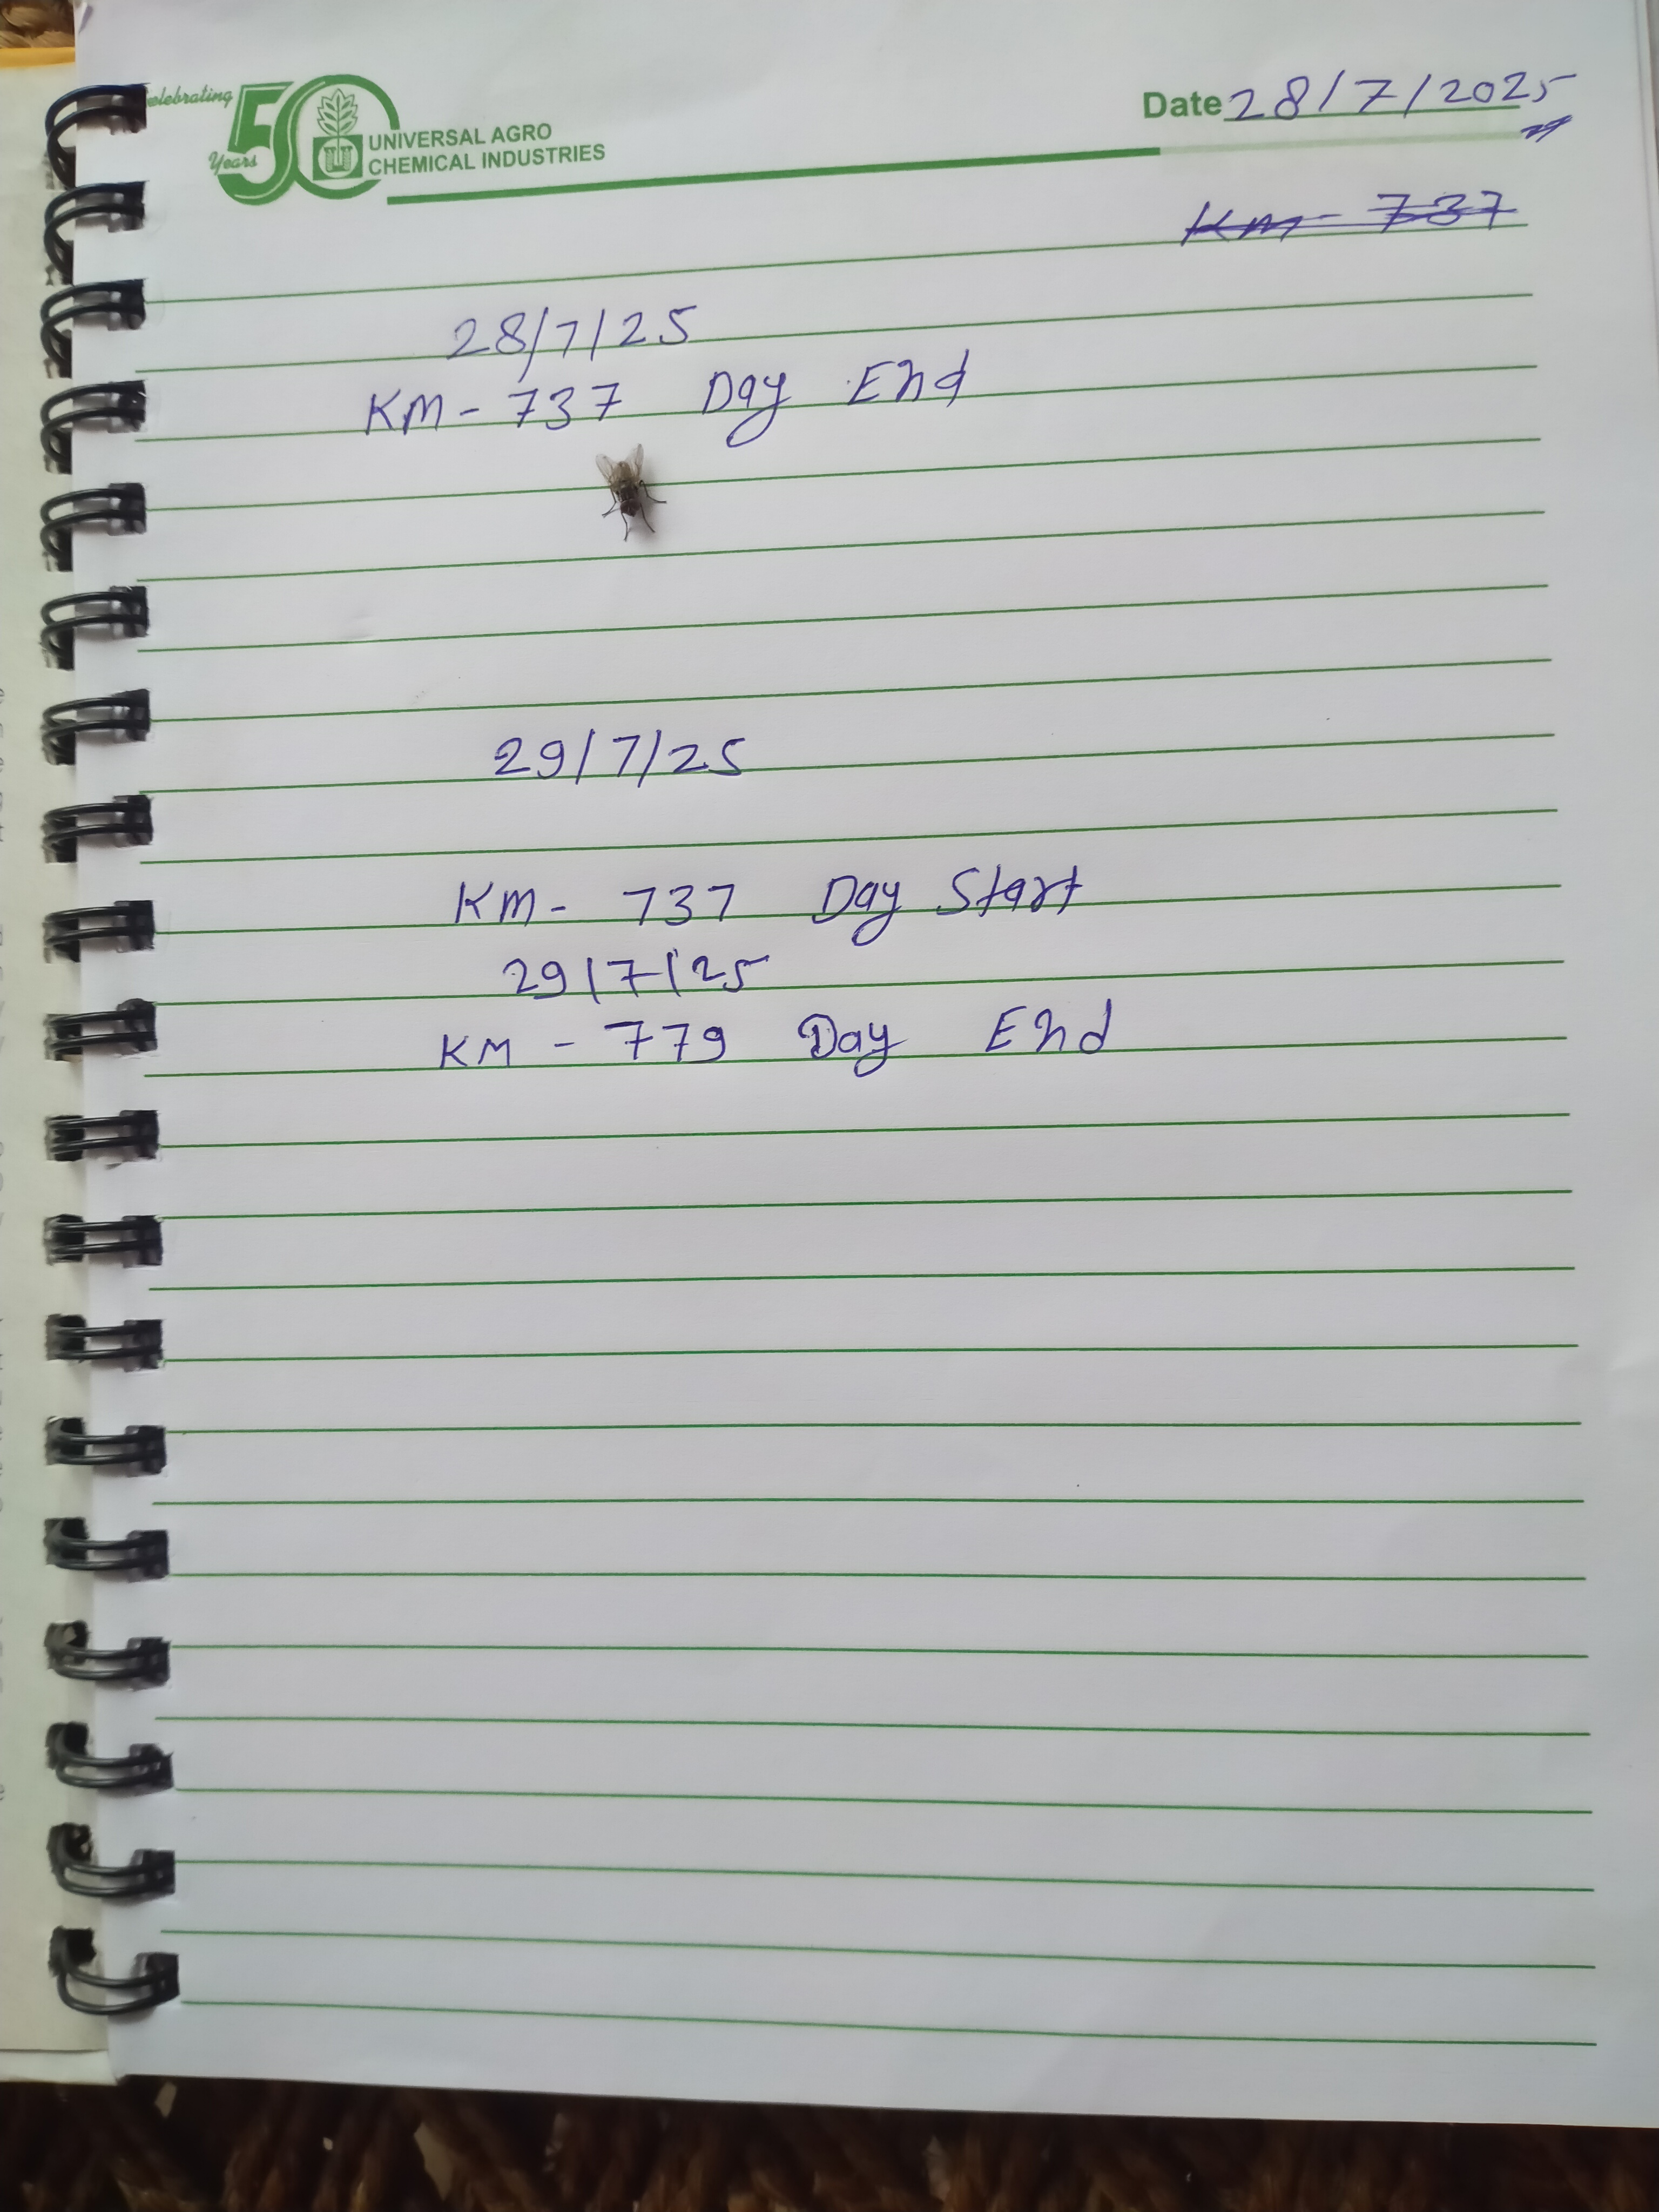 Celebrating 50 Years
UNIVERSAL AGRO
CHEMICAL INDUSTRIES
Date 28/7/2025
Km - 737
28/7/25
KM - 737 Day End
29/7/25
KM - 737 Day Start
29/7/25
KM - 779 Day End